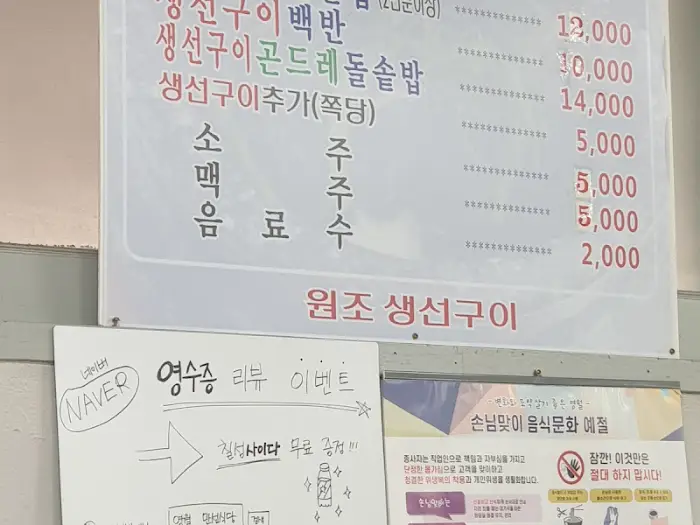 (2인분이상) ************* 12,000
생선구이백반 ************* 10,000
생선구이곤드레돌솥밥 ************* 14,000
생선구이추가(쪽당) ************* 5,000
소 주 ************* 5,000
맥 주 ************* 5,000
음 료 수 ************* 2,000
원조 생선구이
네이버
NAVER
영수증 리뷰 이벤트
칠성사이다 무료 증정!!!
손님맞이 음식문화 예절
종사자는 직업인으로 책임과 자부심을 가지고
단정한 몸가짐으로 고객을 맞이하고
청결한 위생복의 착용과 개인위생을 생활화합니다.
잠깐! 이것만은
절대 하지 맙시다!
손님맞이는